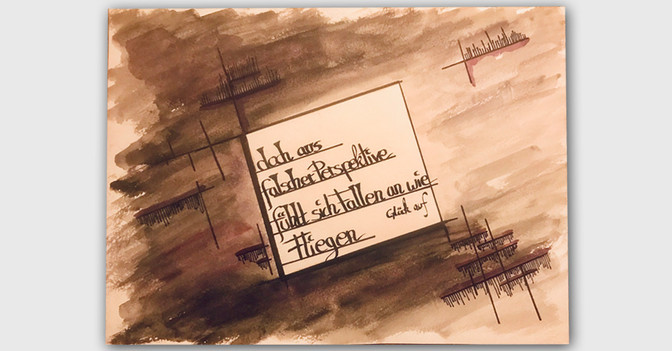 doch aus
falscher Perspektive
fühlt sich Fallen an wie
Fliegen
Glück auf